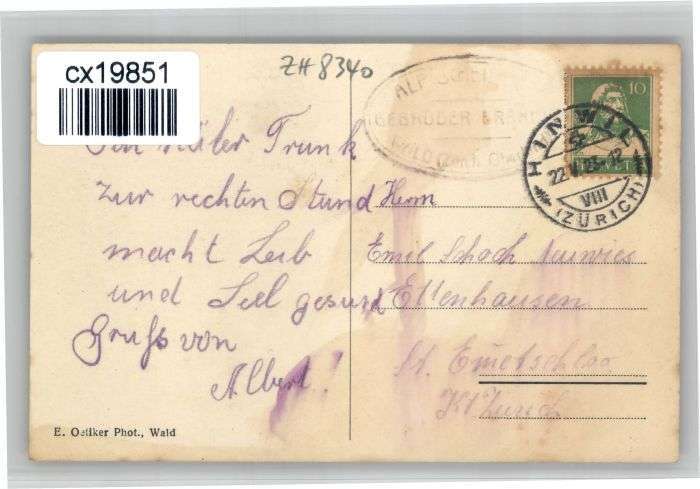 cx19851
ZH 8340
ALP
GEBRÜDER
10
HELVETIA
HINWIL
22.
VIII
(ZÜRICH)
Ein kühler Trunk
zur rechten Stund
macht Leib
und Seel gesund
Gruss von
Albert!
Herrn
Emil Schoch
Ettenhausen
Kt Zürich
E. Oetiker Phot., Wald